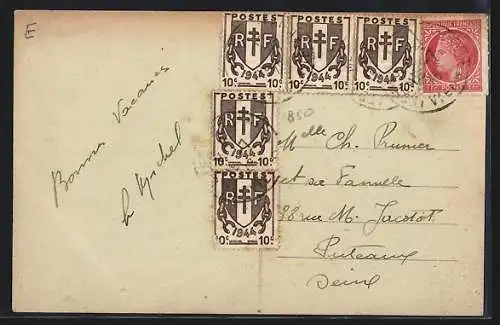 POSTES
RF
1944
10c 10c
POSTES
RF
1944
10c 10c
POSTES
RF
1944
10c 10c
POSTES
RF
1944
10c 10c
POSTES
RF
1944
10c 10c
850
Bonnes Vacances
Michel
Melle Ch. Prunier
et sa Famille
rue M. Jacotot
Puteaux
Seine